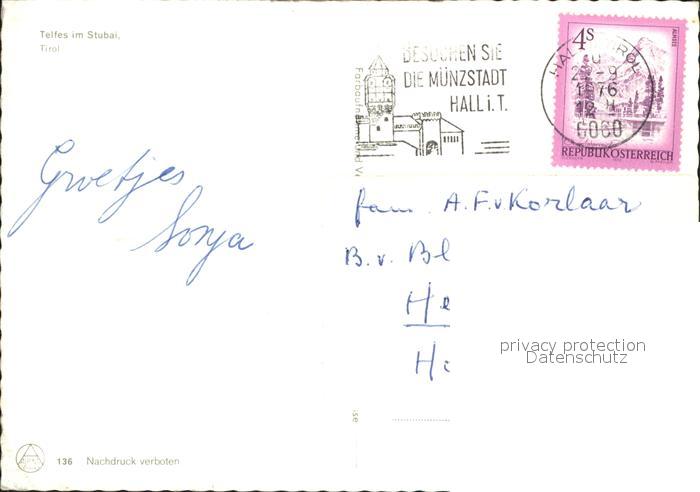 Telfes im Stubai,
Tirol
BESUCHEN SIE
DIE MÜNZSTADT
HALL i. T.
4s
ALMSEE
1976
6060
REPUBLIK ÖSTERREICH
Groetjes
Sonja
fam. A.F. v Korlaar
B. v. Bl
He
privacy protection
Datenschutz
136 Nachdruck verboten